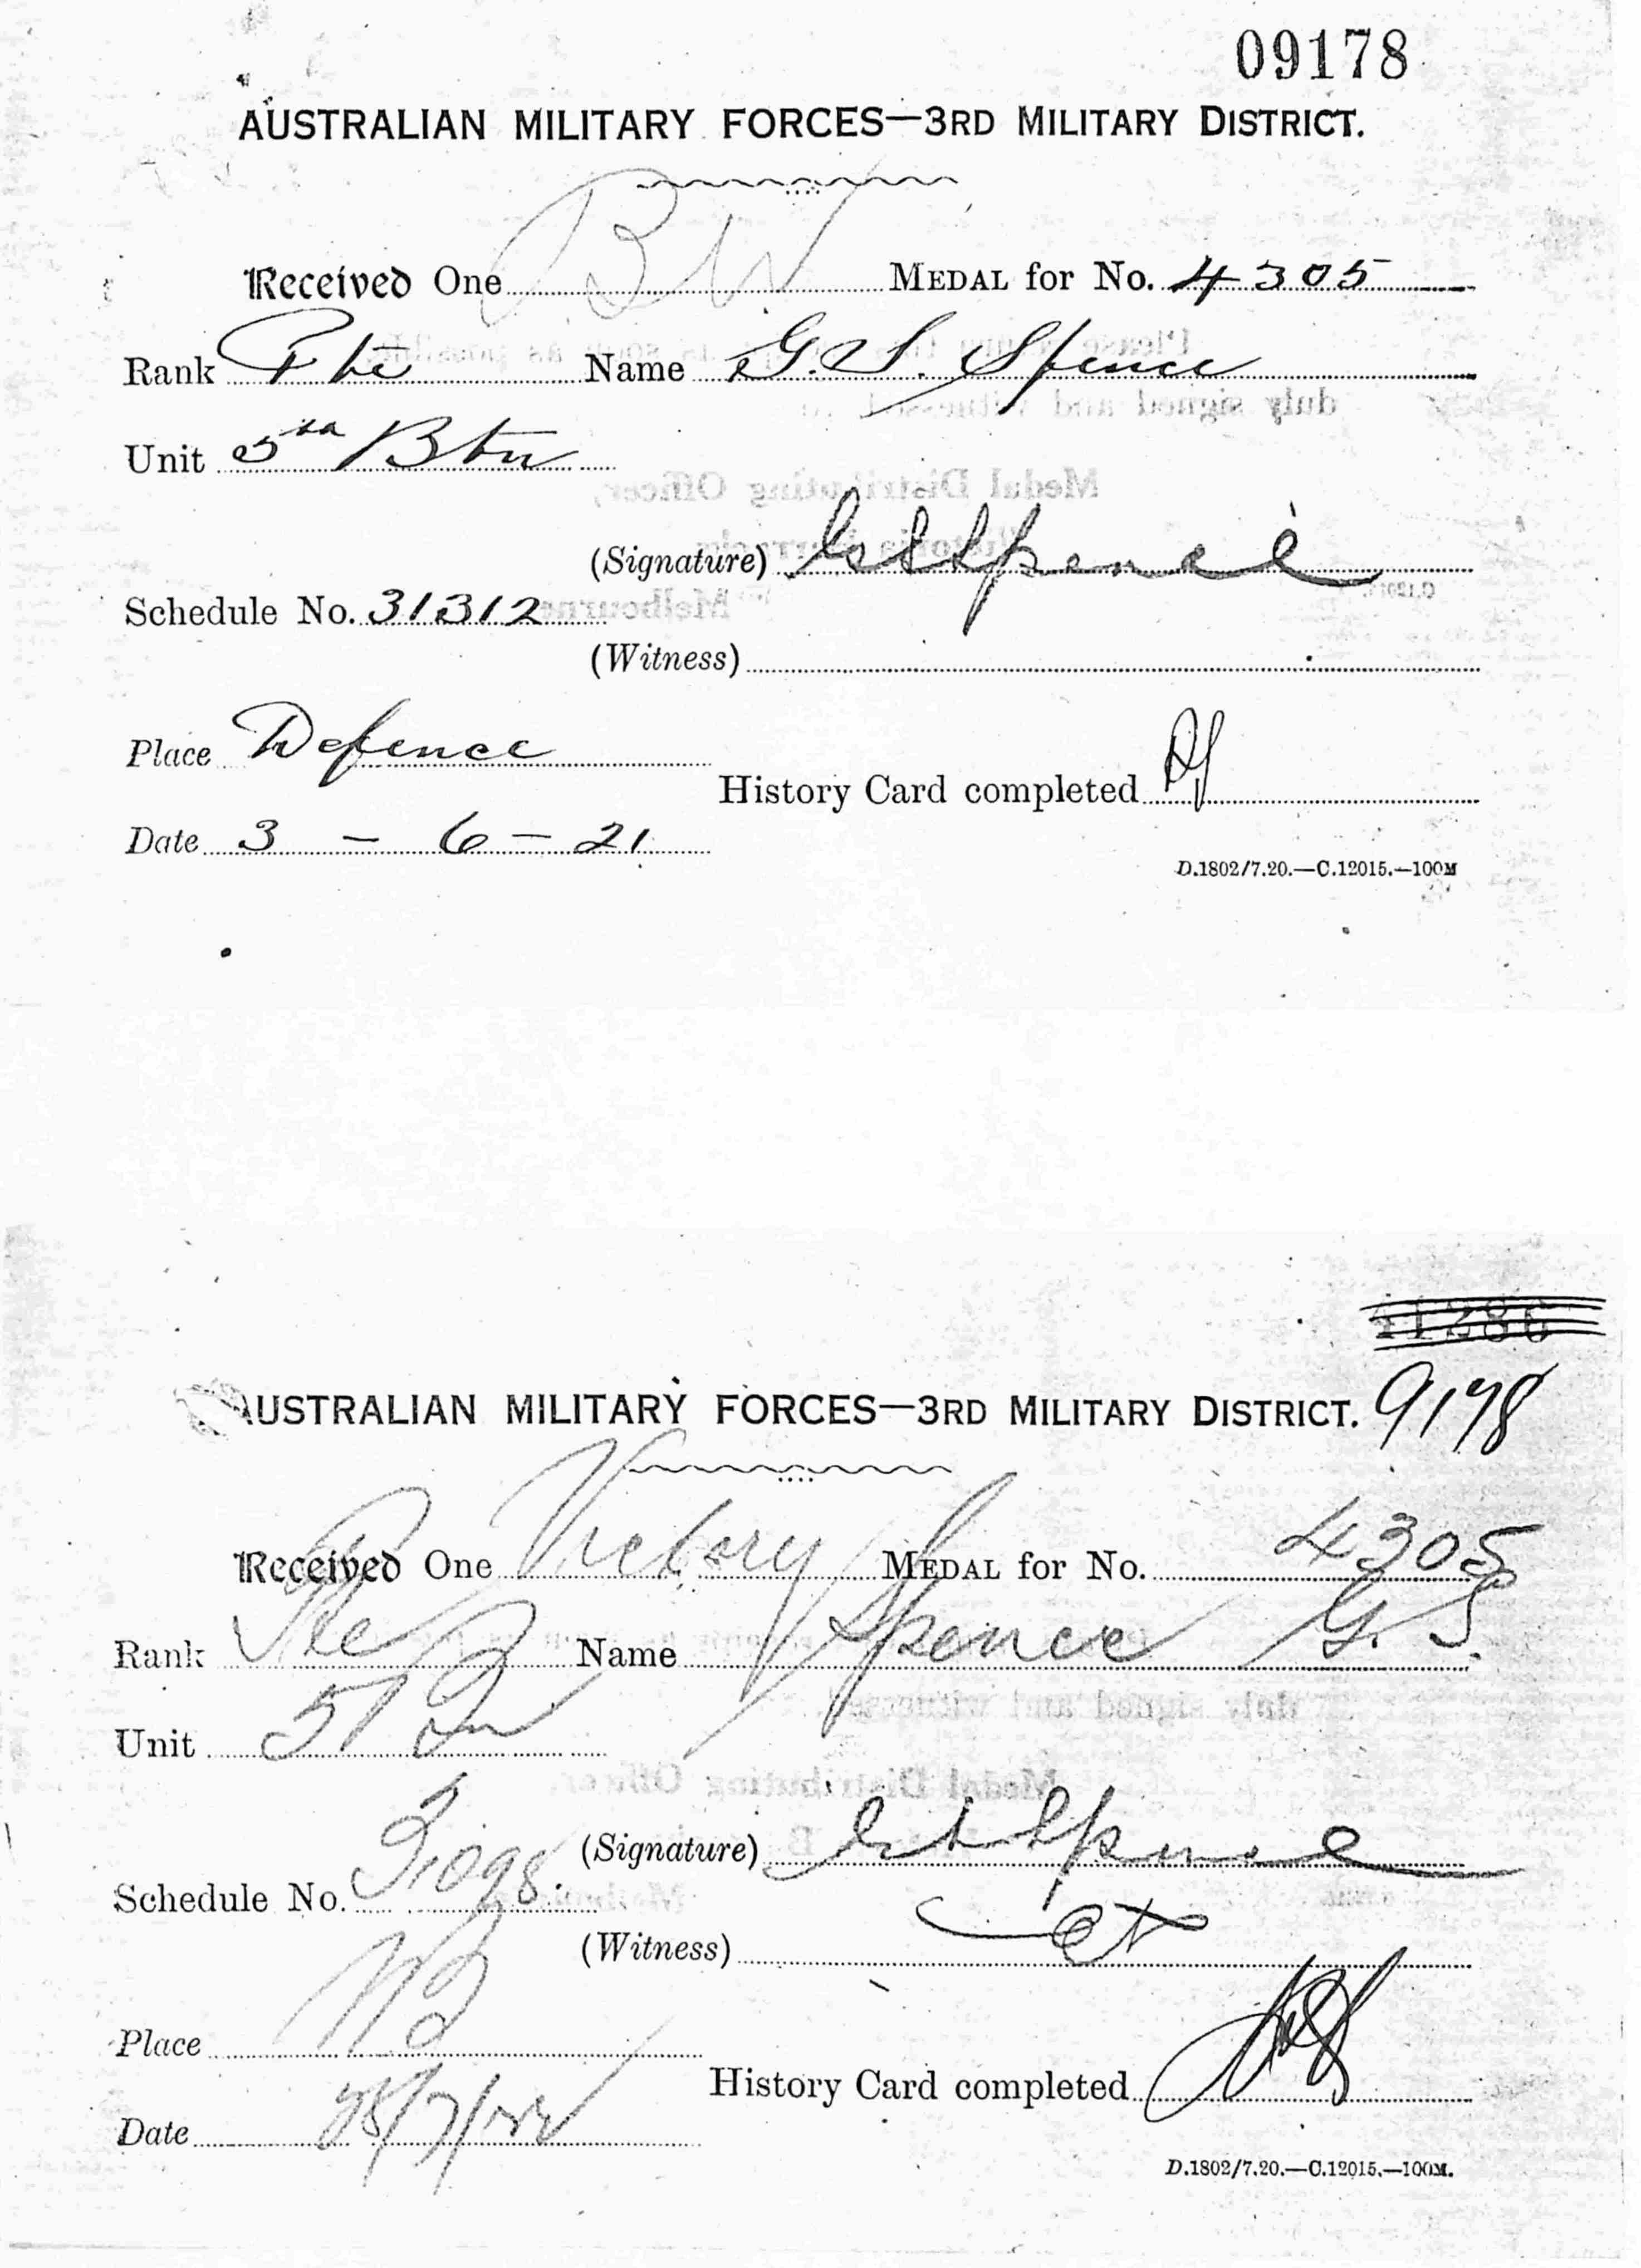 09178
AUSTRALIAN MILITARY FORCES—3RD MILITARY DISTRICT.
Received One BW MEDAL for No. 4305
Rank Pte Name G.S. Spence
Unit 5th Btn
(Signature) G S Spence
Schedule No. 31312
(Witness)
Place Defence
History Card completed
Date 3 - 6 - 21
D.1802/7.20.—C.12015.—100M
41286
AUSTRALIAN MILITARY FORCES—3RD MILITARY DISTRICT. 9178
Received One Victory MEDAL for No. 4305
Rank Pte Name Spence G. S.
Unit 5 Bn
(Signature) G S Spence
Schedule No.
(Witness)
Place
History Card completed
Date
D.1802/7.20.—C.12015.—100M.